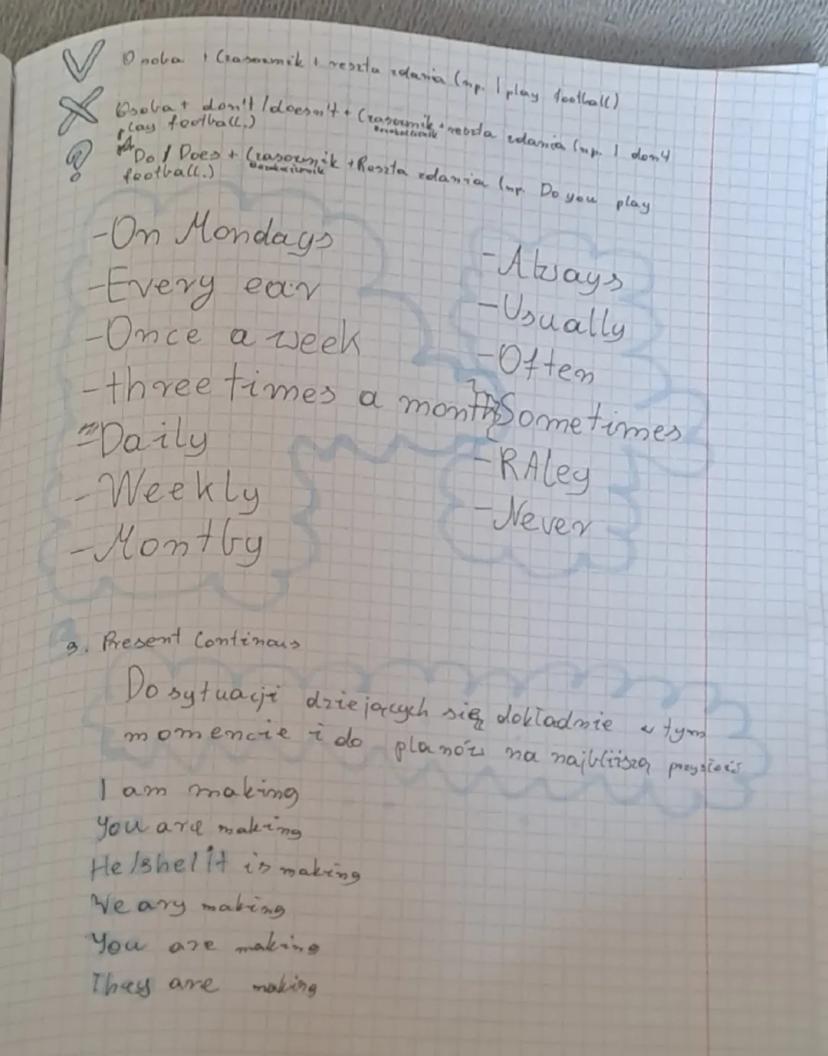 Osoba + Czasownik + reszta zdania (np. I play football)
Osoba + don't/doesn't + Czasownik + reszta zdania (np. I don't
play football.)
Do/Does + Czasownik + Reszta zdania (np. Do you play
football.)
-On Mondays
-Every ear
-Once a week
-three times a month
-Daily
-Weekly
-Montby
-Always
-Usually
-Often
-Sometimes
-RAley
-Never
3. Present Continous
Do sytuacji dziejących się dokładnie w tym
momencie i do planów na najbliższą przyszłość
I am making
You are making
He/she/it is making
We ary making
You are making
They are making